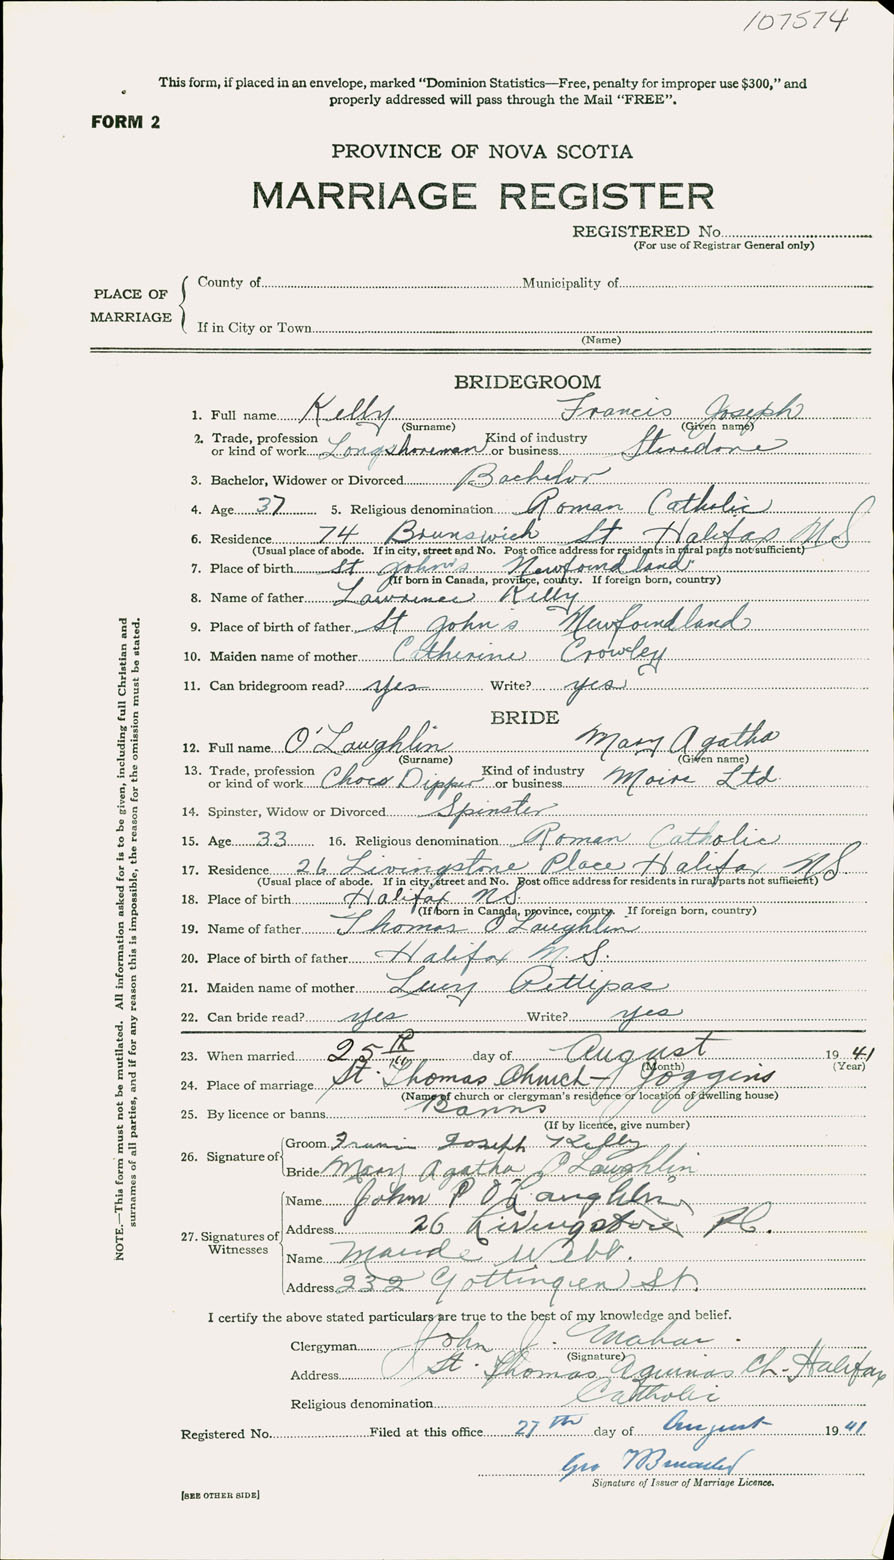 107574
This form, if placed in an envelope, marked “Dominion Statistics—Free, penalty for improper use $300,” and
properly addressed will pass through the Mail “FREE”.
FORM 2
PROVINCE OF NOVA SCOTIA
MARRIAGE REGISTER
REGISTERED No.
(For use of Registrar General only)
PLACE OF MARRIAGE
County of Municipality of
If in City or Town
(Name)
BRIDEGROOM
1. Full name Kelly Francis Joseph
(Surname) (Given name)
2. Trade, profession or kind of work Longshoreman Kind of industry or business Stevedore
3. Bachelor, Widower or Divorced Bachelor
4. Age 37 5. Religious denomination Roman Catholic
6. Residence 74 Brunswick St Halifax NS
(Usual place of abode. If in city, street and No. Post office address for residents in rural parts not sufficient)
7. Place of birth St John's Newfoundland
(If born in Canada, province, county. If foreign born, country)
8. Name of father Lawrence Kelly
9. Place of birth of father St John's Newfoundland
10. Maiden name of mother Catherine Crowley
11. Can bridegroom read? yes Write? yes
BRIDE
12. Full name O'Laughlin Mary Agatha
(Surname) (Given name)
13. Trade, profession or kind of work Choco Dipper Kind of industry or business Moirs Ltd.
14. Spinster, Widow or Divorced Spinster
15. Age 33 16. Religious denomination Roman Catholic
17. Residence 26 Livingstone Place Halifax NS.
(Usual place of abode. If in city, street and No. Post office address for residents in rural parts not sufficient)
18. Place of birth Halifax NS.
(If born in Canada, province, county. If foreign born, country)
19. Name of father Thomas O'Laughlin
20. Place of birth of father Halifax N.S.
21. Maiden name of mother Lucy Pettipas
22. Can bride read? yes Write? yes
23. When married 25th day of August 1941
(Month) (Year)
24. Place of marriage St. Thomas Church - Joggins
(Name of church or clergyman's residence or location of dwelling house)
25. By licence or banns Banns
(If by licence, give number)
26. Signature of
Groom Francis Joseph Kelly
Bride Mary Agatha O'Laughlin
27. Signatures of Witnesses
Name John P O'Laughlin
Address 26 Livingstone Pl.
Name Maude Webb.
Address 232 Gottingen St.
I certify the above stated particulars are true to the best of my knowledge and belief.
Clergyman John J. Mahar.
(Signature)
Address St. Thomas Aquinas Ch - Halifax
Religious denomination Catholic
Registered No. Filed at this office 27th day of August 1941
Geo
Signature of Issuer of Marriage Licence.
[SEE OTHER SIDE]
NOTE.—This form must not be mutilated. All information asked for is to be given, including full Christian and
surnames of all parties, and if for any reason this is impossible, the reason for the omission must be stated.